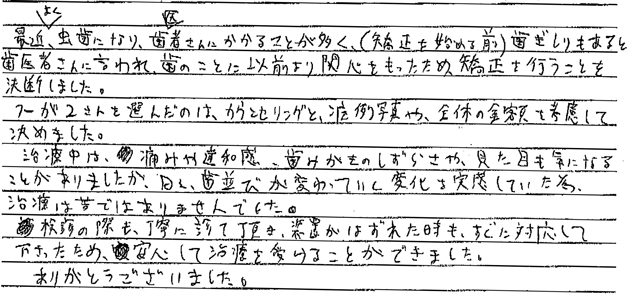 よく 医
最近、虫歯になり、歯者さんにかかることが多く、(矯正を始める前)歯ぎしりもあると
歯医者さんに言われ、歯のことに以前より関心をもったため、矯正を行うことを
決断しました。
さんを選んだのは、カウンセリングと、症例写真や、全体の金額を考慮して
決めました。
治療中は、痛みや違和感、歯みがきのしずらさや、見た目も気になる
ことがありましたが、日々、歯並びが変わっていく変化を実感していた為、
治療は苦ではありませんでした。
検診の際も、丁寧に診て頂き、装置がはずれた時も、すぐに対応して
下さったため、安心して治療を受けることができました。
ありがとうございました。